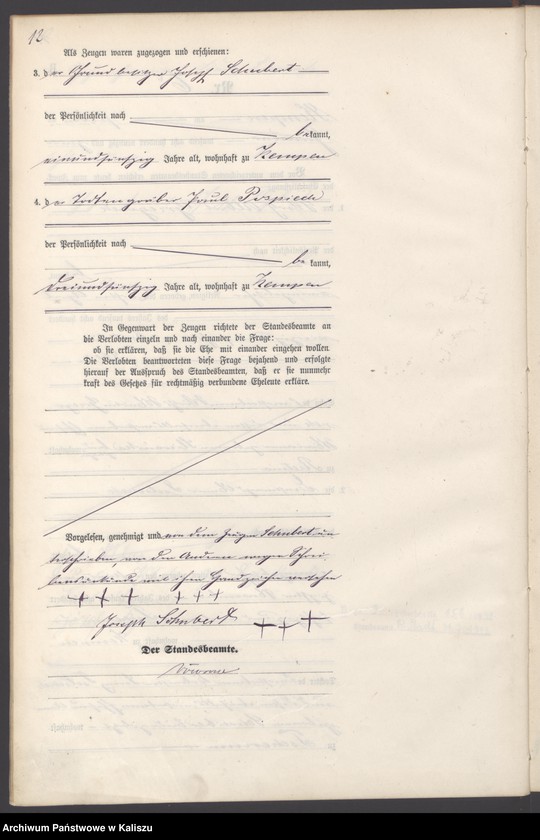 12
Als Zeugen waren zugezogen und erschienen:
3. der Grundbesitzer Joseph Schubert
der Persönlichkeit nach
bekannt,
einundfünfzig Jahre alt, wohnhaft zu Kempen
4. der Todtengräber Paul Pospiech
der Persönlichkeit nach
bekannt,
dreiundfünfzig Jahre alt, wohnhaft zu Kempen
In Gegenwart der Zeugen richtete der Standesbeamte an
die Verlobten einzeln und nach einander die Frage:
ob sie erklären, daß sie die Ehe mit einander eingehen wollen.
Die Verlobten beantworteten diese Frage bejahend und erfolgte
hierauf der Ausspruch des Standesbeamten, daß er sie nunmehr
kraft des Gesetzes für rechtmäßig verbundene Eheleute erkläre.
Vorgelesen, genehmigt und von dem Zeugen Schubert un
terschrieben, von den Anderen wegen Schrei
bensunkunde mit ihren Handzeichen versehen
+ + + + + +
Joseph Schubert + + +
Der Standesbeamte.
Archiwum Państwowe w Kaliszu